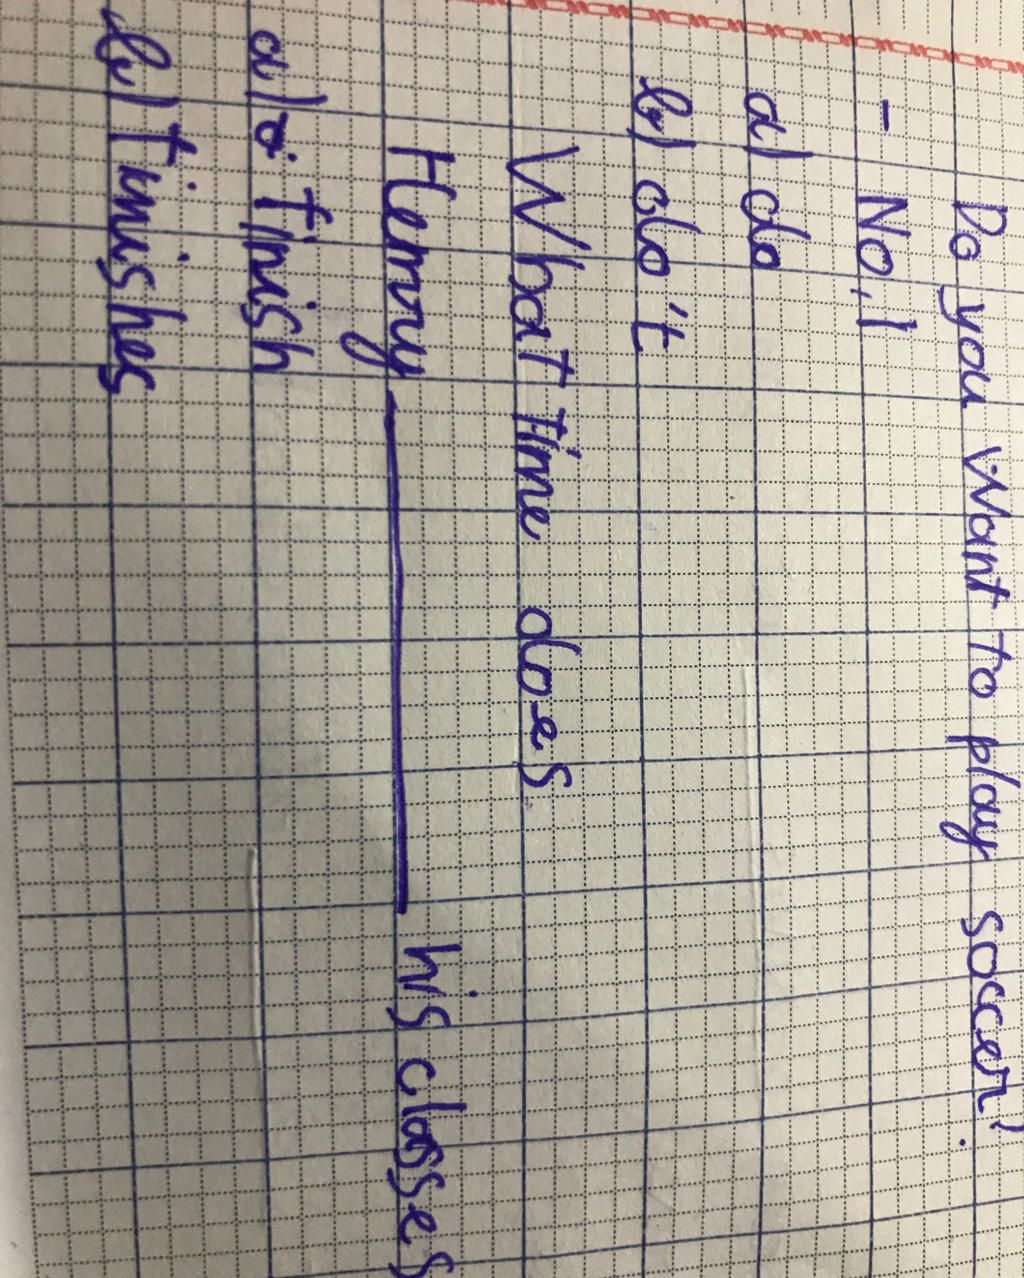 Do you want to play soccer?
- No, I
a) do
b) do't
What time does
Henry ______ his classes
a) finish
b) finishes